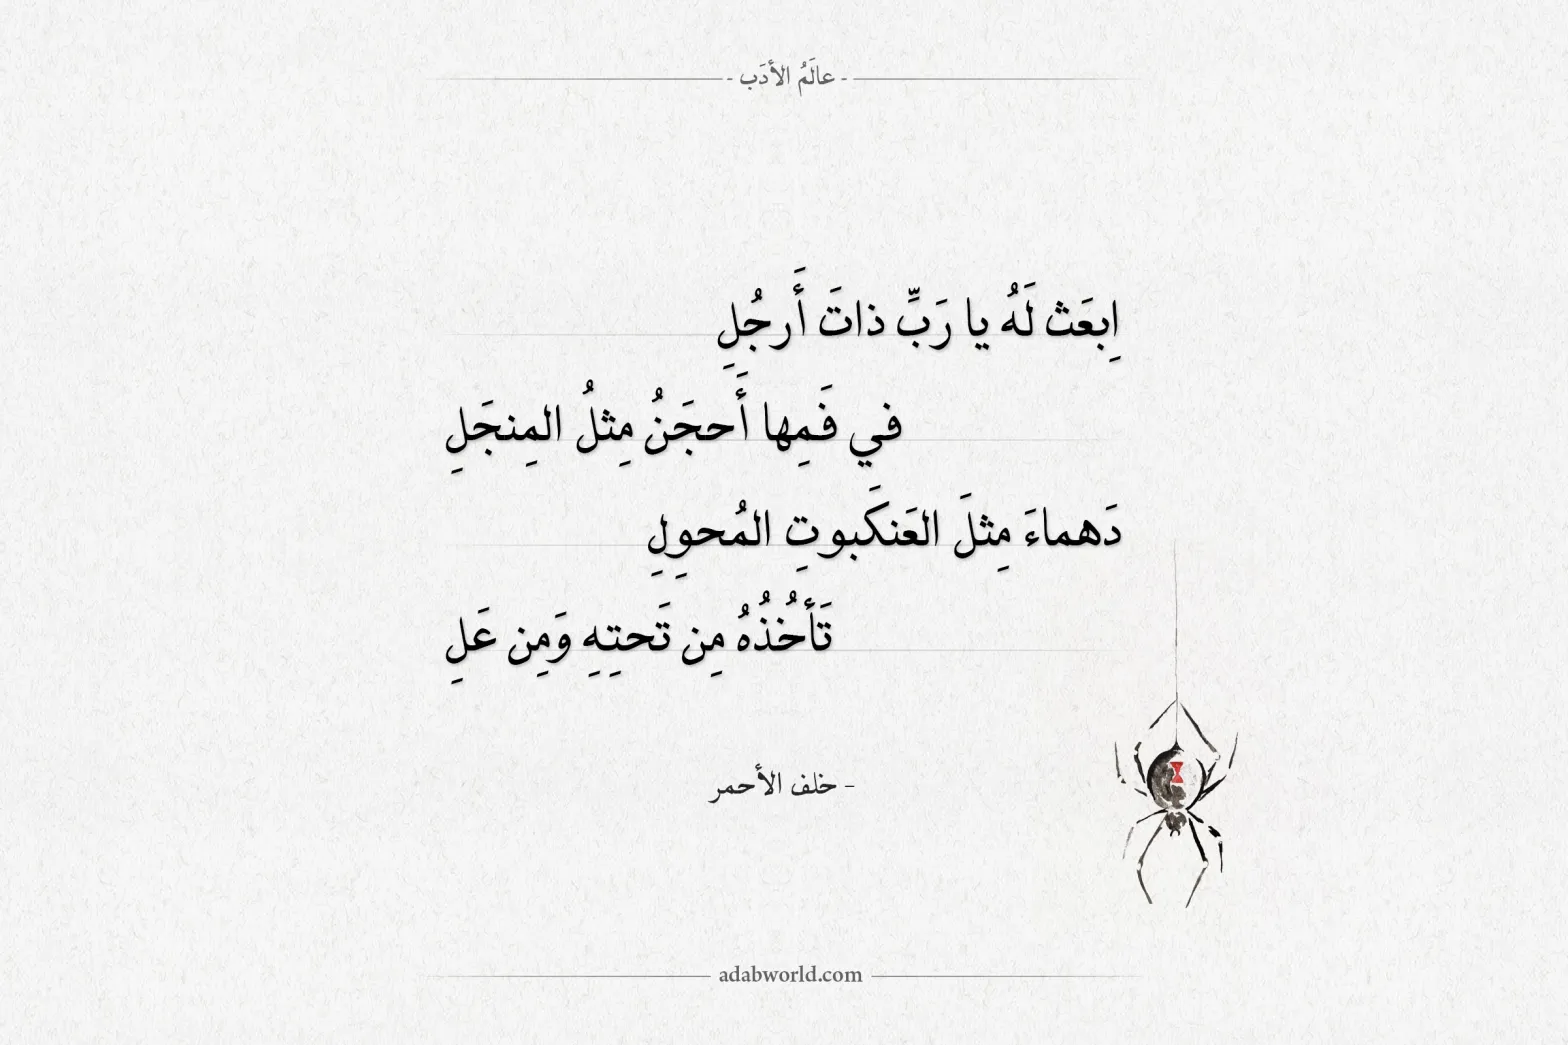 - عالَمُ الأدَب -
اِبعَث لَهُ يا رَبِّ ذاتَ أَرجُلِ
في فَمِها أَحجَنُ مِثلُ المِنجَلِ
دَهماءَ مِثلَ العَنكَبوتِ المُحوِلِ
تَأخُذُهُ مِن تَحتِهِ وَمِن عَلِ
- خلف الأحمر
adabworld.com